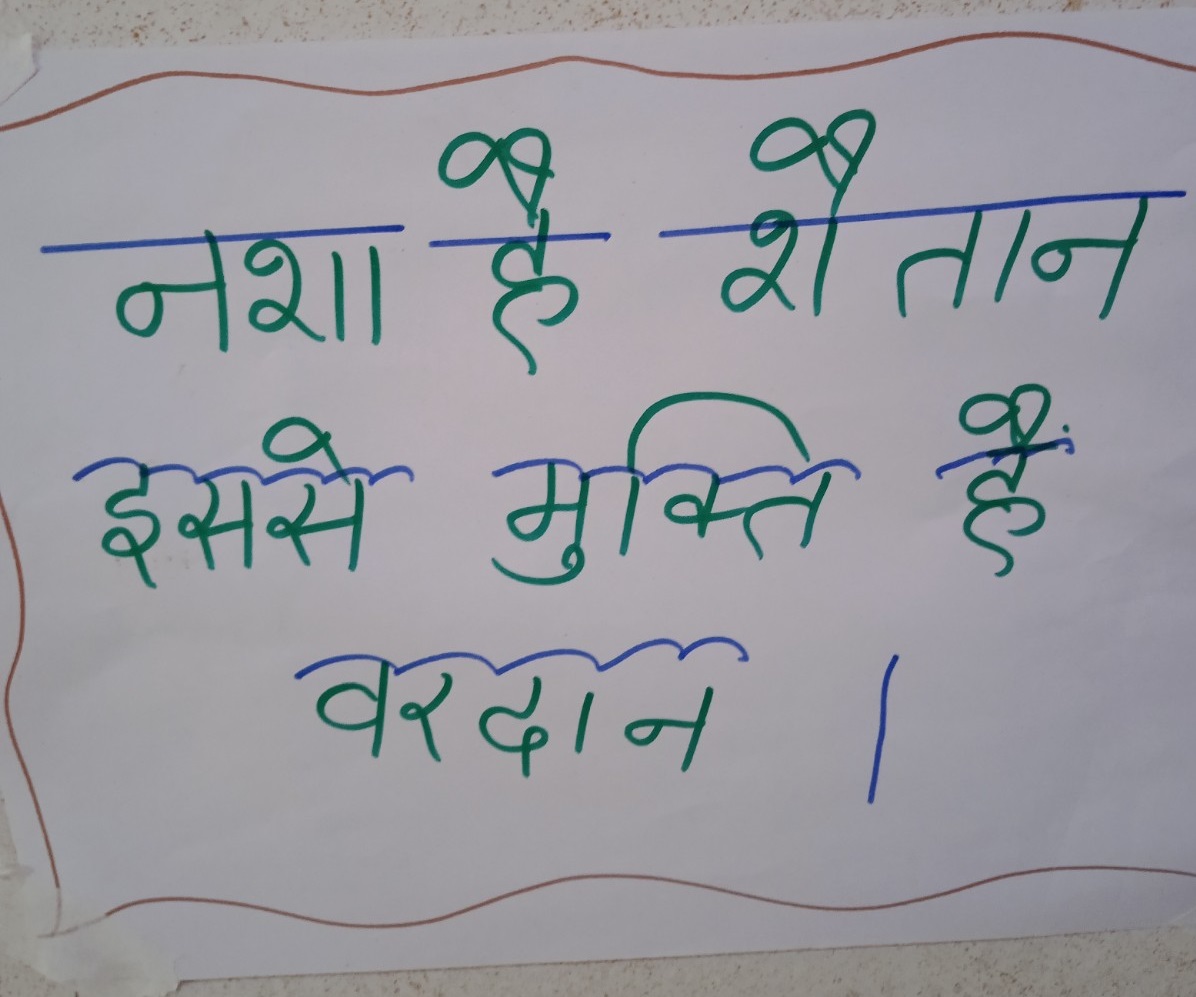 नशा है शैतान
इससे मुक्ति है
वरदान ।